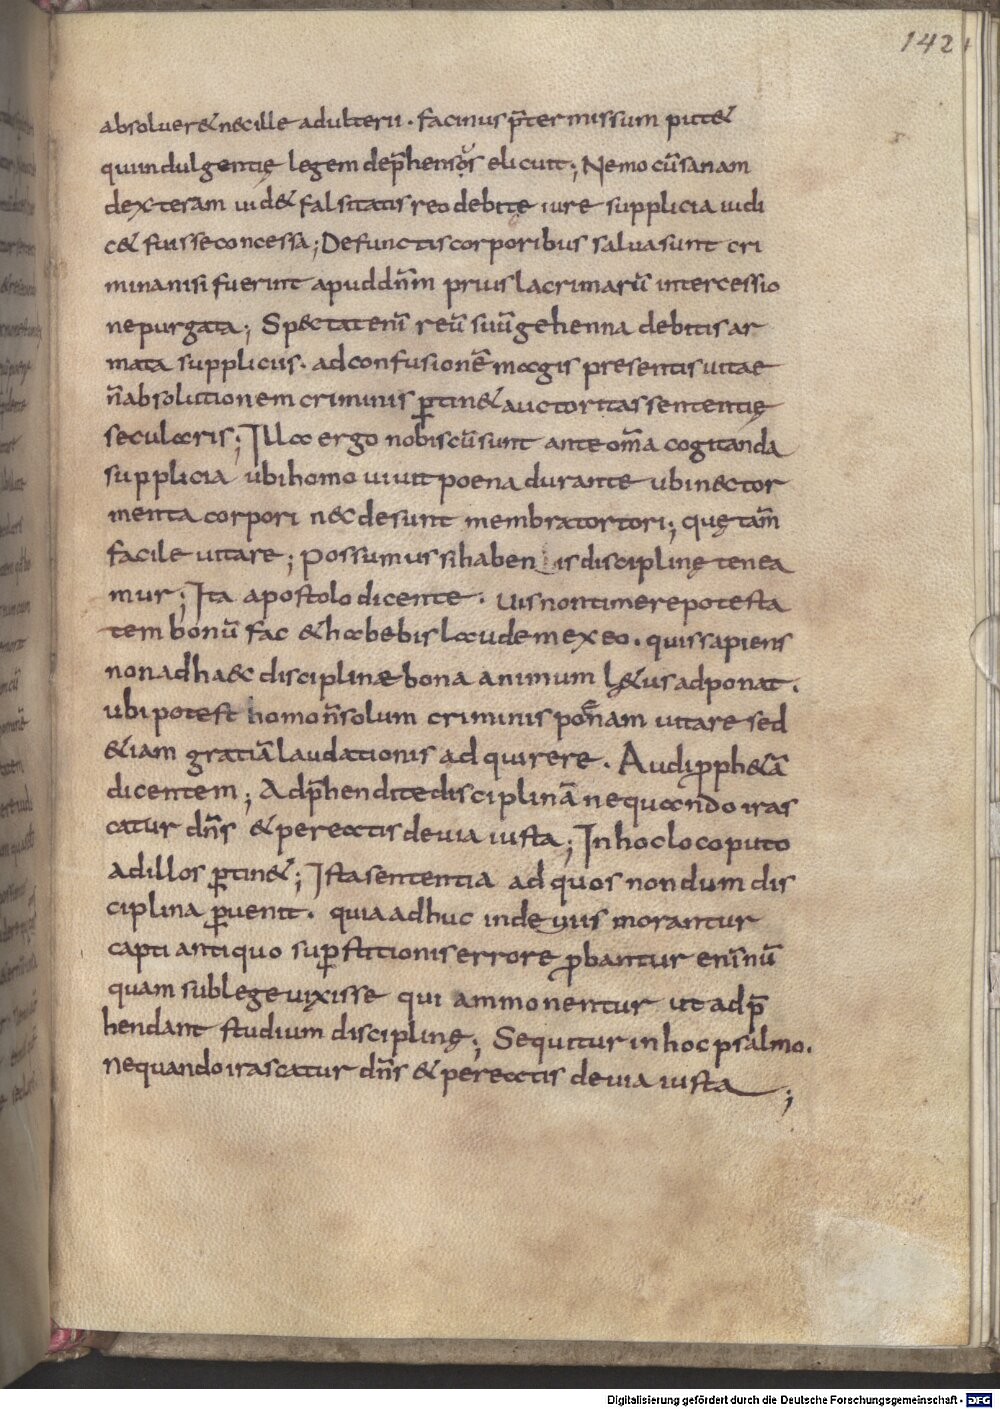 142
absoluer& nec ille adulterii. facinus p̄termissum put&
qui indulgentię legem dep̄hensos elicuit; Nemo cū sanam
dexteram uid& falsitatis reo debitę iure supplicia uidi
c& fuisse concessa; Defunctis corporibus salua sunt cri
mina nisi fuerint apud dn̄m prius lacrimarū intercessio
ne purgata; Spectat enī reū suū gehenna debitis ar
mata suppliciis. ad confusionē magis presentis uitae
n̄ absolutionem criminis ꝑtin& auctoritas sententię
secularis; Illa ergo nobiscū sunt ante om̄a cogitanda
supplicia ubi homo uiuit poena durante ubi nec tor
menta corpori nec desunt membra tortori; quę tam̄
facile uitare; possumus si haben is disciplinę tenea
mur; Ita apostolo dicente. uis non timere potesta
tem bonū fac & habebis laudem ex eo. quis sapiens
non ad haec disciplinae bona animum l&us adponat.
ubi potest homo n̄ solum criminis poēnam uitare sed
&iam gratiā laudationis adquirere. Audi pph&ā
dicentem; Adp̄hendite disciplinā ne quando iras
catur dn̄s & pereatis de uia iusta; In hoc loco puto
ad illos ꝑtin&; Ista sententia ad quos nondum dis
ciplina ꝑuenit. quia adhuc in deuiis morantur
capti antiquo suꝑstitionis errore ꝓbantur enī nū
quam sub lege uixisse qui ammonentur ut adp̄
hendant studium disciplinę; Sequitur in hoc psalmo.
ne quando irascatur dn̄s & pereatis de uia iusta;
Digitalisierung gefördert durch die Deutsche Forschungsgemeinschaft - DFG